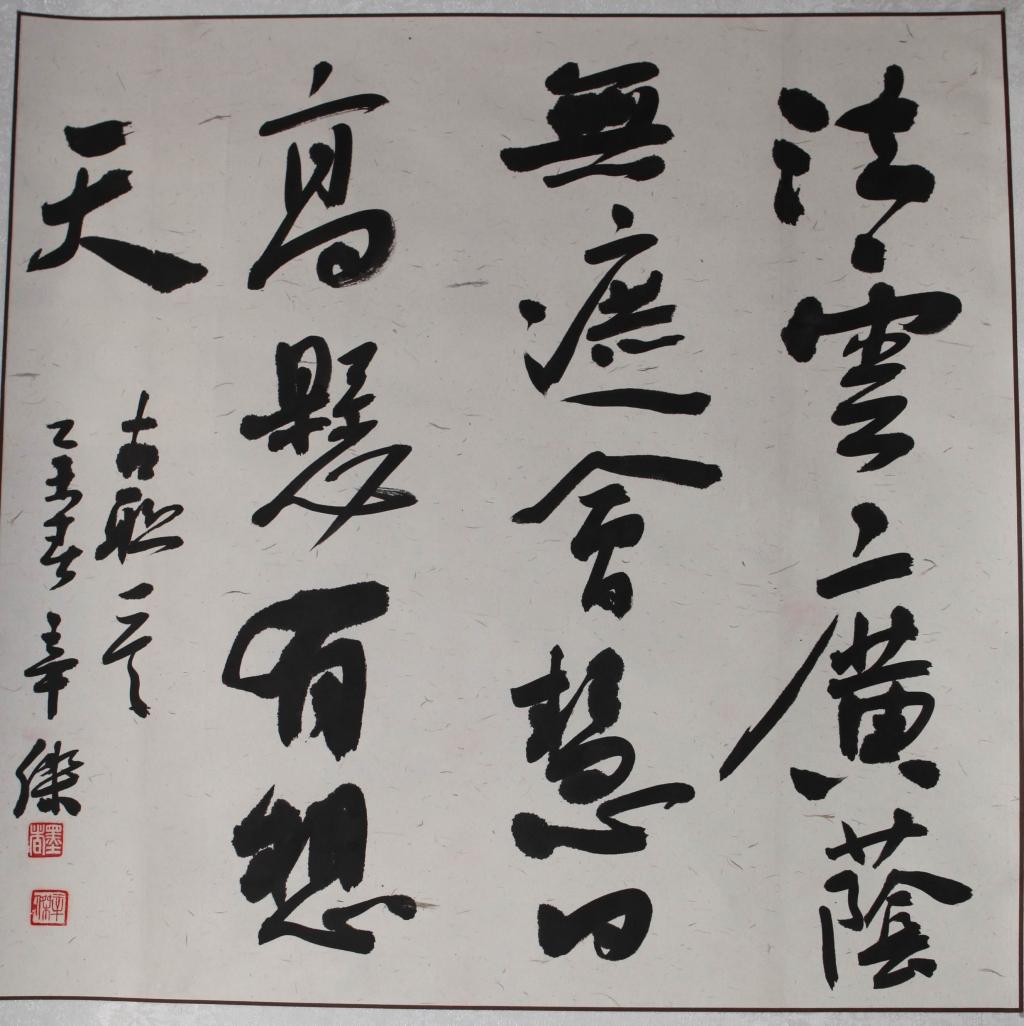 法雲廣蔭
無遮會慧日
高懸有想
天
古聯一首
乙未春辛傑